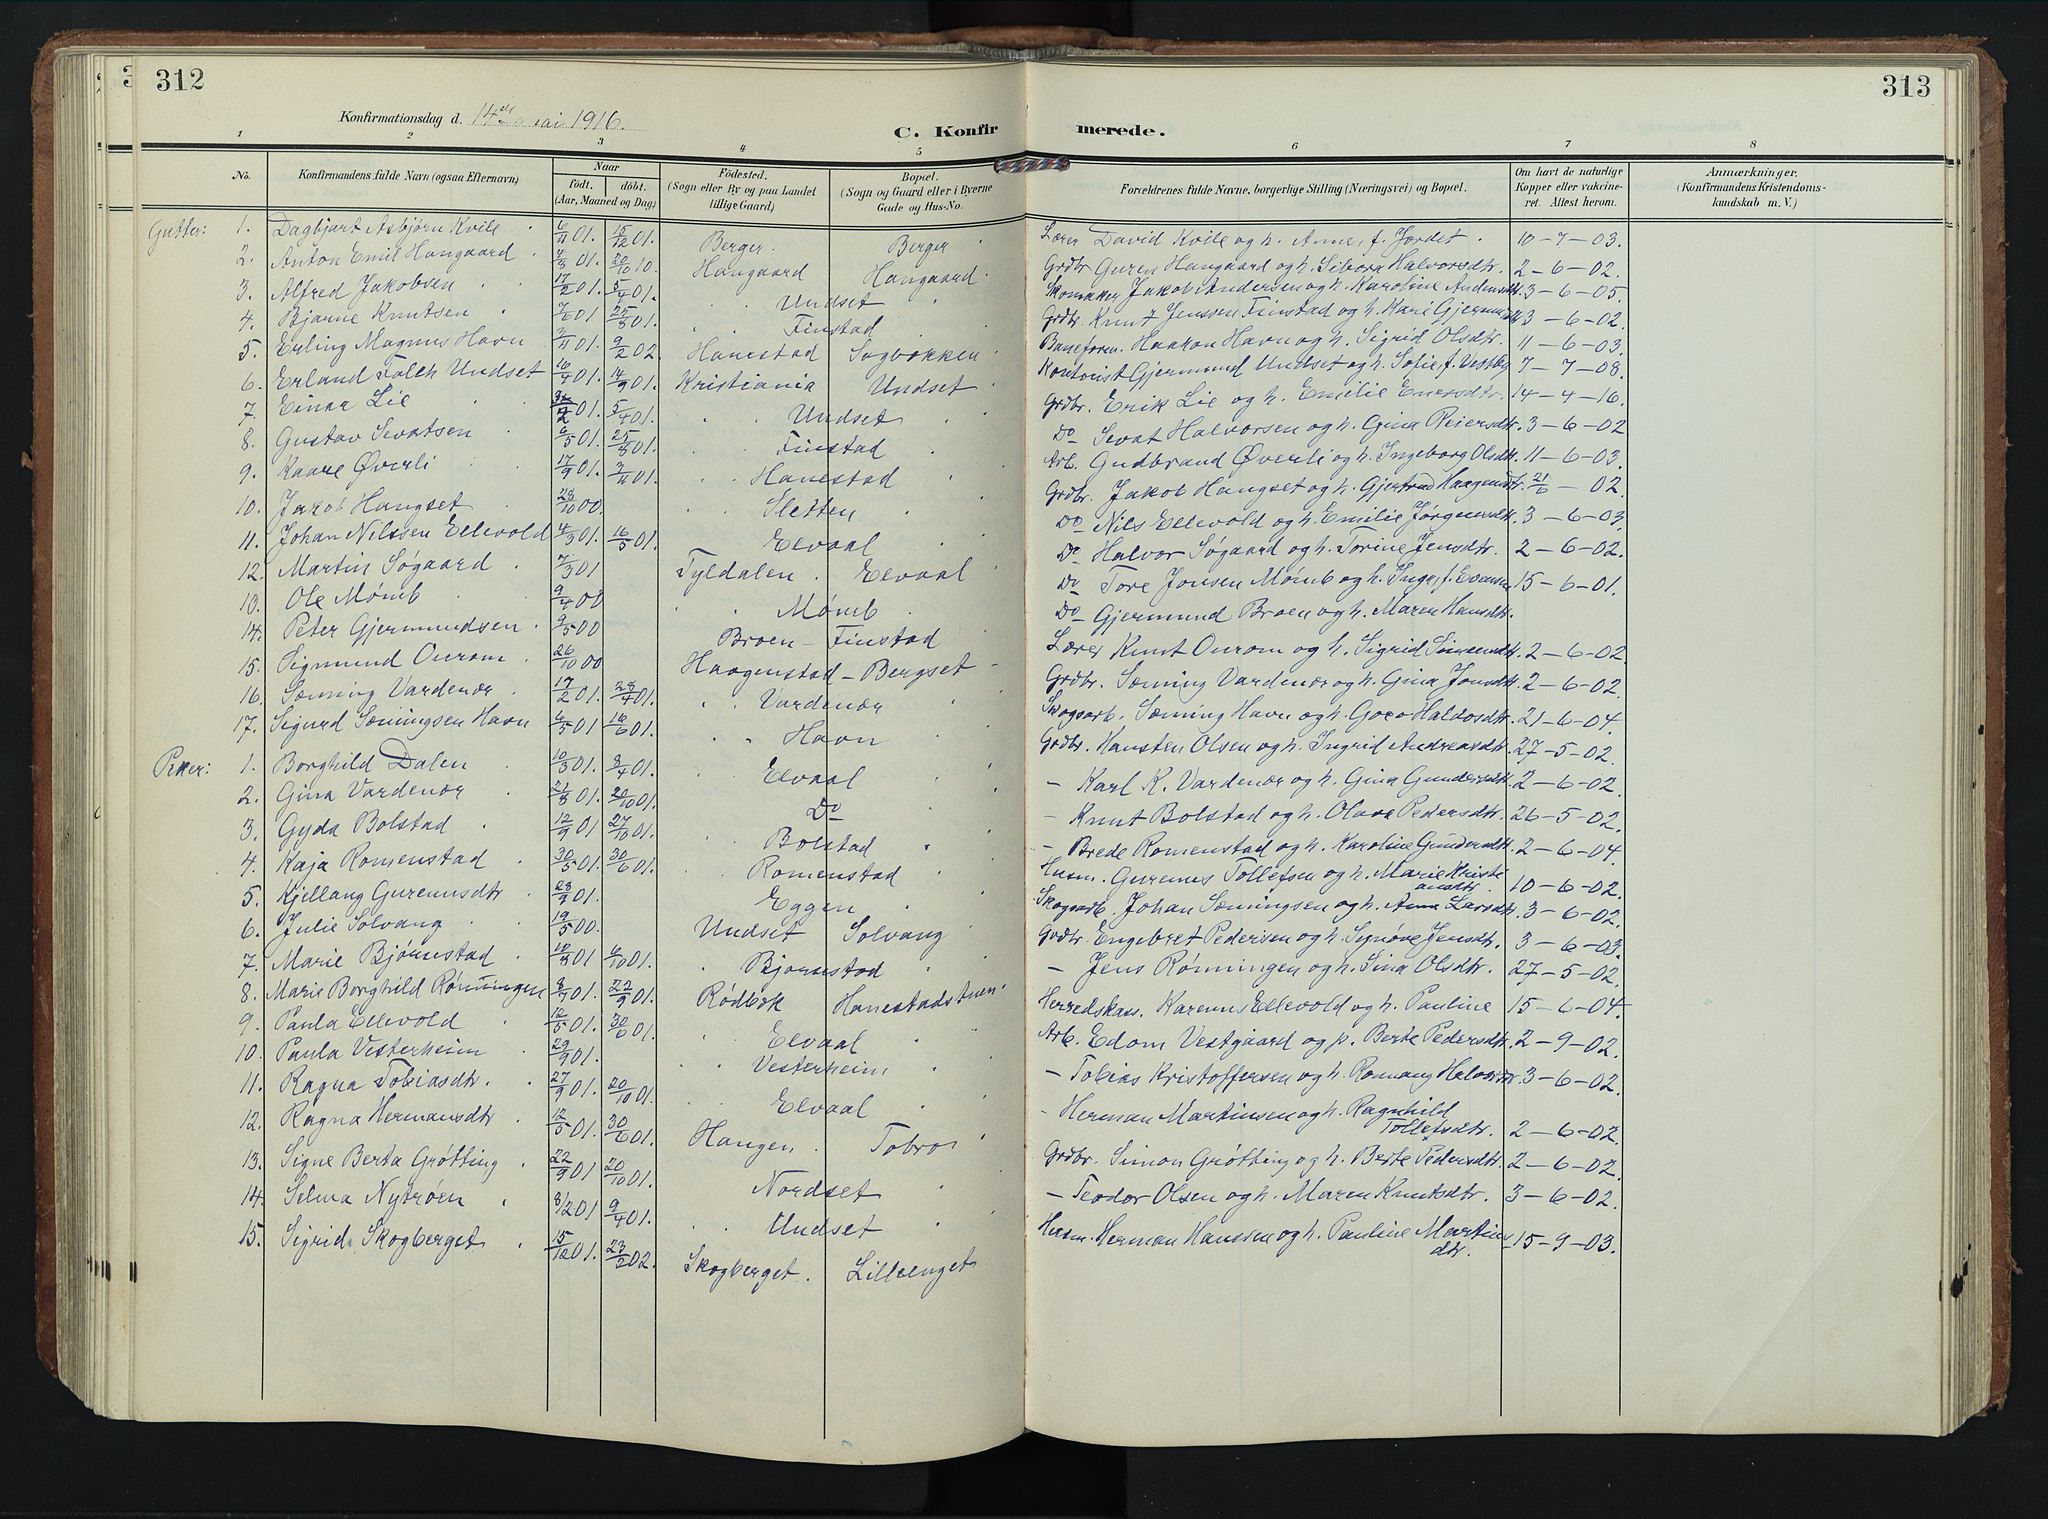 312
313
Konfirmationsdag d. 14de mai 1916.
C. Konfirmerede.
1 2 3 4 5 6 7 8
No.
Konfirmandens fulde Navn (ogsaa Efternavn)
Naar
födt. döbt.
(Aar, Maaned og Dag)
Födested.
(Sogn eller By og paa Landet
tillige Gaard)
Bopæl.
(Sogn og Gaard eller i Byerne
Gade og Hus-No.
Forældrenes fulde Navne, borgerlige Stilling (Næringsvei) og Bopæl.
Om havt de naturlige
Kopper eller vakcine-
ret. Attest herom.
Anmærkninger,
(Konfirmandens Kristendoms-
kundskab m. V.)
Gutter: 1. Dagbjart Asbjørn Kvile 6/11 01. 15/12 01. Berger. Berger Lærer David Kvile og h. Anne, f. Jordet. 10-7-03.
2. Anton Emil Haugaard 4/8 01. 20/10 10. Haugaard Haugaard Grdbr. Guren Haugaard og h. Silvora Halvorsdtr. 2-6-02.
3. Alfred Jakobsen 17/2 01. 5/4 01. " " Undset Skomaker Jakob Andersen og h. Karoline Andersdtr. 3-6-05.
4. Bjarne Knutsen 7/6 01 25/8 01. " " Finstad Grdbr. Knut Jenssen Finstad og h. Kari Gjermundsdtr. 3-6-02.
5. Erling Magnus Havn 2/11 01. 9/2 02. Hanestad Sagbakken Baneform. Haakon Havn og h. Sigrid Olsdtr. 11-6-03.
6. Erland Falch Undset 16/4 01. 14/9 01. Kristiania Undset Kontorist Gjermund Undset og h. Sofie, f. Vestby 7-7-08.
7. Einar Lie 5/4 01. " " Undset Grdbr. Erik Lie og h. Emilie Enersdtr. 14-4-16.
8. Gustav Sevatsen 6/5 01. 25/8 01. Finstad Do Sevat Halvorsen og h. Gina Reiersdtr. 3-6-02
9. Kaare Øverli 17/9 01. 3/4 01. " " Hanestad Arb. Gudbrand Øverli og h. Ingeborg Olsdtr. 11-6-03.
10. Jakob Haugset 28/10 00. " " Sletten Grdbr. Jakob Haugset og h. Gjertrud Haagensdtr. 21/6 - 02.
11. Johan Nilssen Ellevold 4/3 01. 16/5 01. Elvaal Do Nils Ellevold og h. Emilie Jørgensdtr. 3-6-03.
12. Martin Søgaard 7/3 01 Tyldalen. Elvaal Do Halvor Søgaard og h. Torine Jensdtr. 2-6-02.
13. Ole Mømb 9/4 00 " " Mømb Do Tore Jonsen Mømb og h. Inger, f. Evensen 15-6-01.
14. Peter Gjermundsen 9/5 00 Broen - Finstad Do Gjermund Broen og h. Maren Hansdtr.
15. Sigmund Ourom 26/10 00. Haagenstad - Bergset Lærer Knut Ourom og h. Sigrid Simensdtr. 2-6-02.
16. Sæming Vardenær 17/2 01. 28/4 01. " " Vardenær Grdbr. Sæming Vardenær og h. Gina Jonsdtr. 2-6-02.
17. Sigurd Sæmingsen Havn 6/5 01. 16/6 01. " " Havn Skogsarb. Sæming Havn og h. Goro Halvosdtr. 21-6-04.
Piker: 1. Borghild Dalen 10/3 01. 8/4 01. Elvaal Grdbr. Hansten Olsen og h. Ingrid Andreasdtr. 27-5-02.
2. Gina Vardenær 21/8 01. 20/10 01. Do - Karl K. Vardenær og h. Gina Gundersdtr. 2-6-02.
3. Gyda Bolstad 12/9 01 27/10 01. Bolstad - Knut Bolstad og h. Olava Pedersdtr. 26-5-02.
4. Kaja Romenstad 30/5 01. 30/6 01. Romenstad - Brede Romenstad og h. Karoline Gundersdtr. 2-6-04.
5. Kjellaug Gurenusdtr 28/9 01. Eggen Husm. Gurenus Tollefsen og h. Marie Kristiansdtr. 10-6-02.
6. Julie Solvang 19/5 00. Undset Solvang Skogsarb. Johan Sæmingsen og h. Anna Larsdtr. 3-6-02.
7. Marie Bjørnstad 10/8 01 6/10 01. Bjørnstad Grdbr. Engebret Pedersen og h. Synøve Jensdtr. 3-6-03.
8. Marie Borghild Rønningen 8/7 01. 22/9 01. Rødbæk Hanestadstuen - Jens Rønningen og h. Sina Olsdtr. 27-5-02.
9. Paula Ellevold 12/5 01. 30/6 01. Elvaal Herredskass. Karenus Ellevold og h. Pauline 15-6-04.
10. Paula Vesterheim 29/9 01. " " Vesterheim Arb. Edom Vestgaard og p. Berte Pedersdtr. 2-9-02.
11. Ragna Tobiasdtr. 27/9 01. 20/10 01. " " Elvaal - Tobias Kristoffersen og h. Romaug Halvorsdtr 3-6-02.
12. Ragna Hermansdtr 12/5 01. 30/6 01. Haugen. Tobro - Herman Martinsen og h. Ragnhild Tollefsdtr. 2-6-02.
13. Signe Berta Grøtting 22/9 01 20/10 01. Nordset Grdbr. Simon Grøtting og h. Berte Pedersdtr. 2-6-02.
14. Selma Nytrøen 8/2 01 9/4 01. " " Undset - Teodor Olsen og h. Maren Knutsdtr. 3-6-02.
15. Sigrid Skogberget 15/12 01. 23/2 02. Skogberget. Lilleenget Husm. Herman Hanssen og h. Pauline Martinsdtr. 15-9-03.